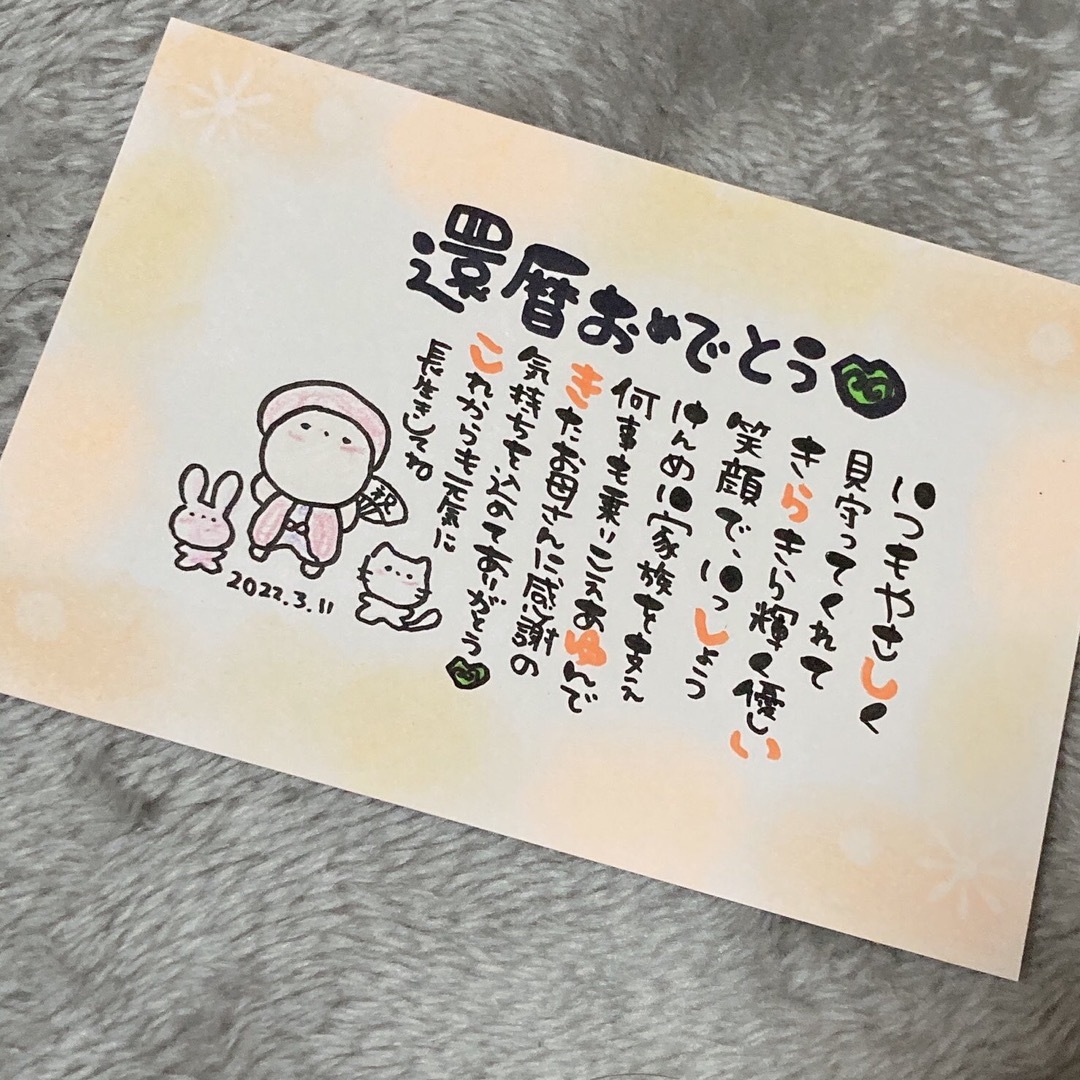 還暦おめでとう
いつもやさしく
見守ってくれて
きらきら輝く優しい
笑顔で、いっしょう
けんめいに家族を支え
何事も乗りこえあゆんで
きたお母さんに感謝の
気持ちを込めてありがとう
これからも元気に
長生きしてね
祝
2022.3.11